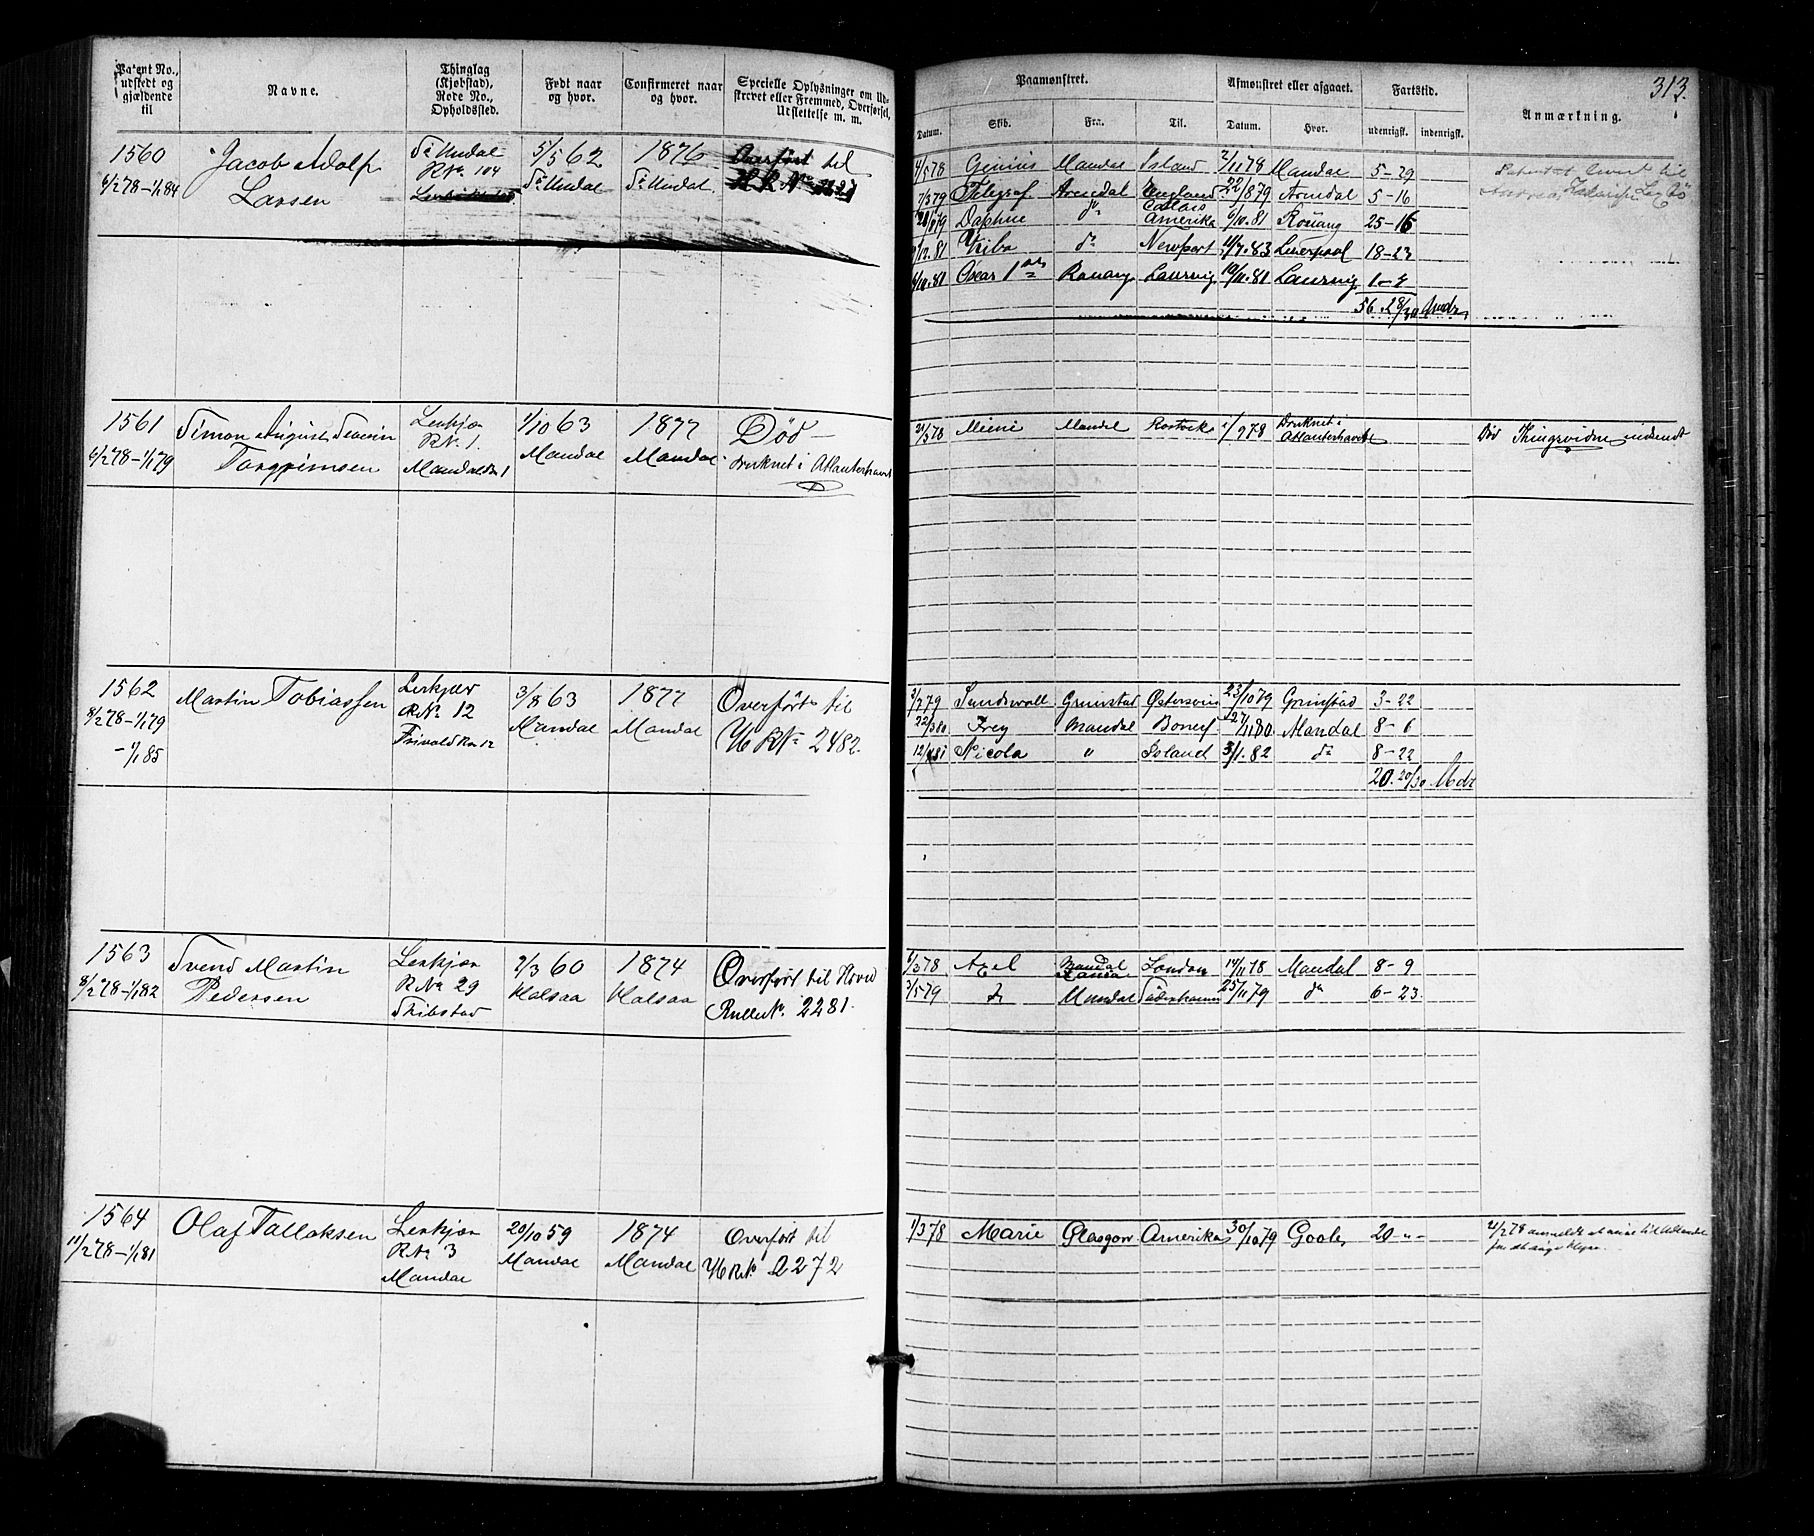 Patent No., udstedt og gjældende til
Navne.
Thinglag (Kjøbstad), Rode No., Opholdssted.
Født naar og hvor.
Confirmeret naar og hvor.
Specielle Oplysninger om Udskrevet eller Fremmed, Overførsel, Udslettelse m. m.
Paamønstret.
Datum.
Skib.
Fra.
Til.
Afmønstret eller afgaaet.
Datum.
Hvor.
Fartstid.
udenrigsk.
indenrigsk.
Anmærkning.
313.
1560
6/2 78 – 1/1 84
Jacob Adolf
Larsen
Sr Undal
RNo. 104
5/5 62
Sr Undal
1876
Sr Undal
Overført til
4/5 78 Genius Mandal Island 2/11 78 Mandal 5–29
7/3 79 Telegraf Arendal England 22/8 79 Arendal 5–16
Daphne do Amerika 6/10.81 Rouang 25–16
Viiba do Newport Liverpool 18–23
Oscar 1ste Rouang Laurvig 10/11.81 Laurvig
56.28/30 Mdr
1561
6/2 78 – 1/1 79
Simon August Severin
Torgrimsen
Leskjær
RNo. 1.
1/10 63
Mandal
1877
Mandal
Død –
druknet i Atlanterhavet
Mandal 1/9 78 Druknet i
Atlanterhavet
1562
8/2 78 – 1/1 79
– 1/1 85
Martin Tobiassen
Leskjær
RNo 12
3/8 63
Mandal
1877
Mandal
Overført til
H RNo 2482.
2/2 79 Sundsvall Grimstad Østersøen 23/10 79 Grimstad 3–22
22/3 80 Frey Mandal Mandal 8–6
Nicola " Island 3/1.82 do 8–22
20.20/30 Mdr
1563
8/2 78 – 1/1 82
Svend Martin
Pedersen
Leskjær
RNo 29
Skibstad
2/3 60
Halsaa
1874
Halsaa
Overført til Hoved
Rulle No. 2281.
Axel Mandal London 14/11 78 Mandal 8–9
3/5 79 Mandal 25/11 79 do 6–23
1564
11/2 78 – 1/1 81
Olaf Tallaksen
Leskjær
RNo 3
Mandal
20/10 59
Mandal
1874
Mandal
Overført til
H RNo 2272
1/3 78 Marie Glasgow Amerika 30/10 79 Goole 20 –"–
21/2 78 anmeldt at reise til Udlandet
for at søge Hyre.